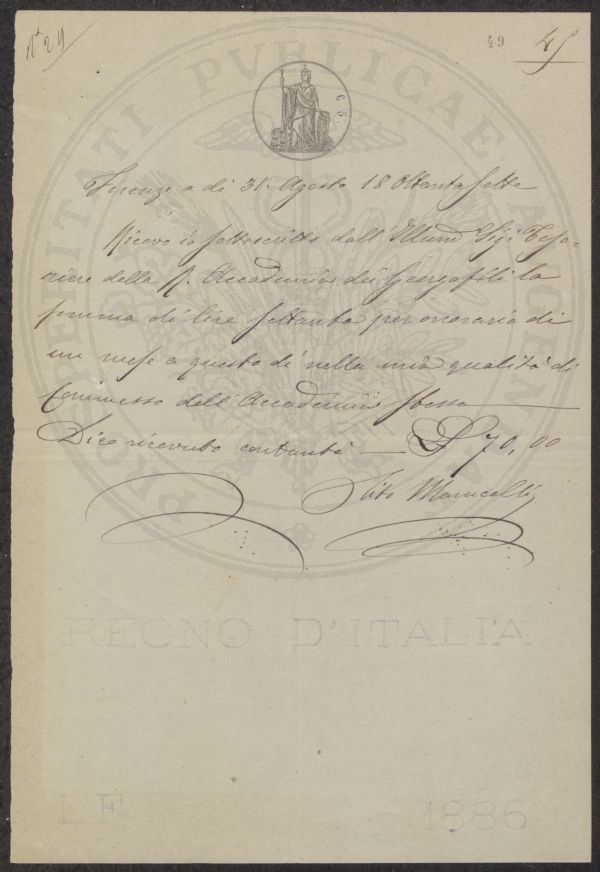 N° 29
49
45
PROSPERITATI PVBLICAE AVGENDAE
C. 5.
Firenze a di 31. Agosto 18 Ottantasette
Ricevo io sottoscritto dall' Illmo Sig: Teso-
riere della R. Accademia dei Georgofili la
somma di lire settanta per onorario di
un mese a questo di nella mia qualità di
Commesso dell' Accademia stessa
Dico ricevuto contanti — £ 70,00
Tito Marucelli
REGNO D'ITALIA
LF 1886